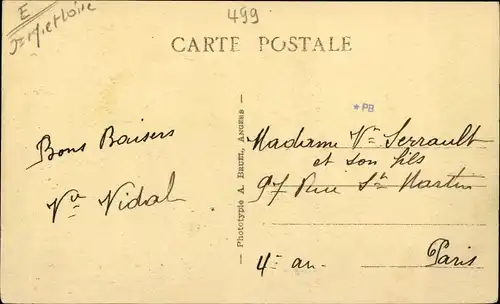 E
Ine et Loire
499
CARTE POSTALE
*PB
Bons Baisers
Vve Vidal
— Phototypie A. BRUEL, ANGERS —
Madame Vve Serrault
et son fils
97 Rue St Martin
4e arr
Paris